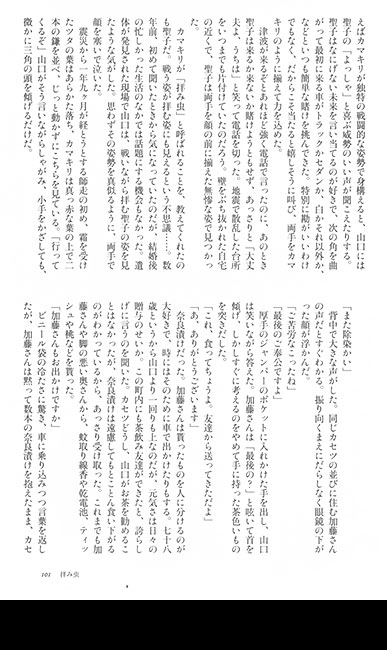 えばカマキリが独特の戦闘的な姿勢で身構えると、山口には
聖子の「よっしゃ」と喜ぶ威勢のいい声が聞こえたりする。
聖子はなにげない未来を言い当てるのが好きで、次の角を曲
がって最初に来る車がトラックかセダンか、白かそれ以外か、
などといつも簡単な賭けを挑んできた。特別に勘がいいわけ
でもなく、だからこそ当たると嬉しそうに叫び、両手をカマ
キリのように揃えて力を込めた。
津波が来るぞとあれほど強く電話で言ったのに、あのとき
聖子は来るか来ないか賭けようともせず、あっさりと「大丈
夫よ、うちは」と笑って電話を切った。地震で散乱した台所
をいつまでも片付けていたのだろう。壁をぶち抜かれた自宅
の近くで、聖子は両手を顔の前に揃えた無惨な姿で見つかっ
た。
カマキリが「拝み虫」と呼ばれることを、教えてくれたの
も聖子だ。戦う姿が拝む姿にも見えるという不思議……。数
年前、初めて聞いたときから気になっていたのだが、結婚後
の忙しかった生活のなかでは話題にする機会もなかった。遺
体が発見された現場で山口は、戦いながら拝む聖子の姿を見
たような気がした。思わずその姿勢を真似るように、両手で
顔を塞いで泣いた。
震災から一年九ヶ月が経とうとする師走の初め、霜を受け
たツタの葉はあらかた落ち、カマキリは真っ赤な葉の上で二
本の鎌を並べ、じっと動かずにこちらを見ている。「行って
くるぞ」山口がそう言いながらしゃがみ、小手をかざしても、
微かに三角の頭を傾げるだけだ。
「また除染かい」
背中で大きな声がした。同じカセツの並びに住む加藤さん
の声だとすぐわかる。振り向くまえにだらしなく眼鏡の下が
った顔が浮かんだ。
「ご苦労なこったね」
「最後のご奉公ですよ」
厚手のジャンパーのポケットに入れかけた手を出し、山口
は笑いながら答えた。加藤さんは「最後の?」と呟いて首を
傾げ、しかしすぐに考えるのをやめて手に持った茶色いもの
を突きだした。
「これ、食ってちょうよ。友達から送ってきただよ」
「あ、ありがとうございます」
奈良漬けだった。加藤さんは貰ったものを人に分けるのが
大好きで、時にはそのために車で出かけたりもする。七十八
歳というから山口より一回りも上なのだが、元気さは日々の
贈与のせいか。この町内にも茶飲み友達ができたと、誇らし
げに言うのを聞いた。カセツどうし、山口がお茶を勧めるこ
とはなかったが、奈良漬けは遠慮してもとことん食い下がる
のがわかっているから、あっさり受け取った。これまでも加
藤さんや脚の悪い奥さんから、蚊取り線香や乾電池、ティッ
シュや桃などを貰った。
「加藤さんもお出かけですか」
ビニール袋の冷たさに驚き、車に乗り込みつつ言葉を返し
たが、加藤さんは黙って数本の奈良漬けを抱えたまま、カセ
101　拝み虫